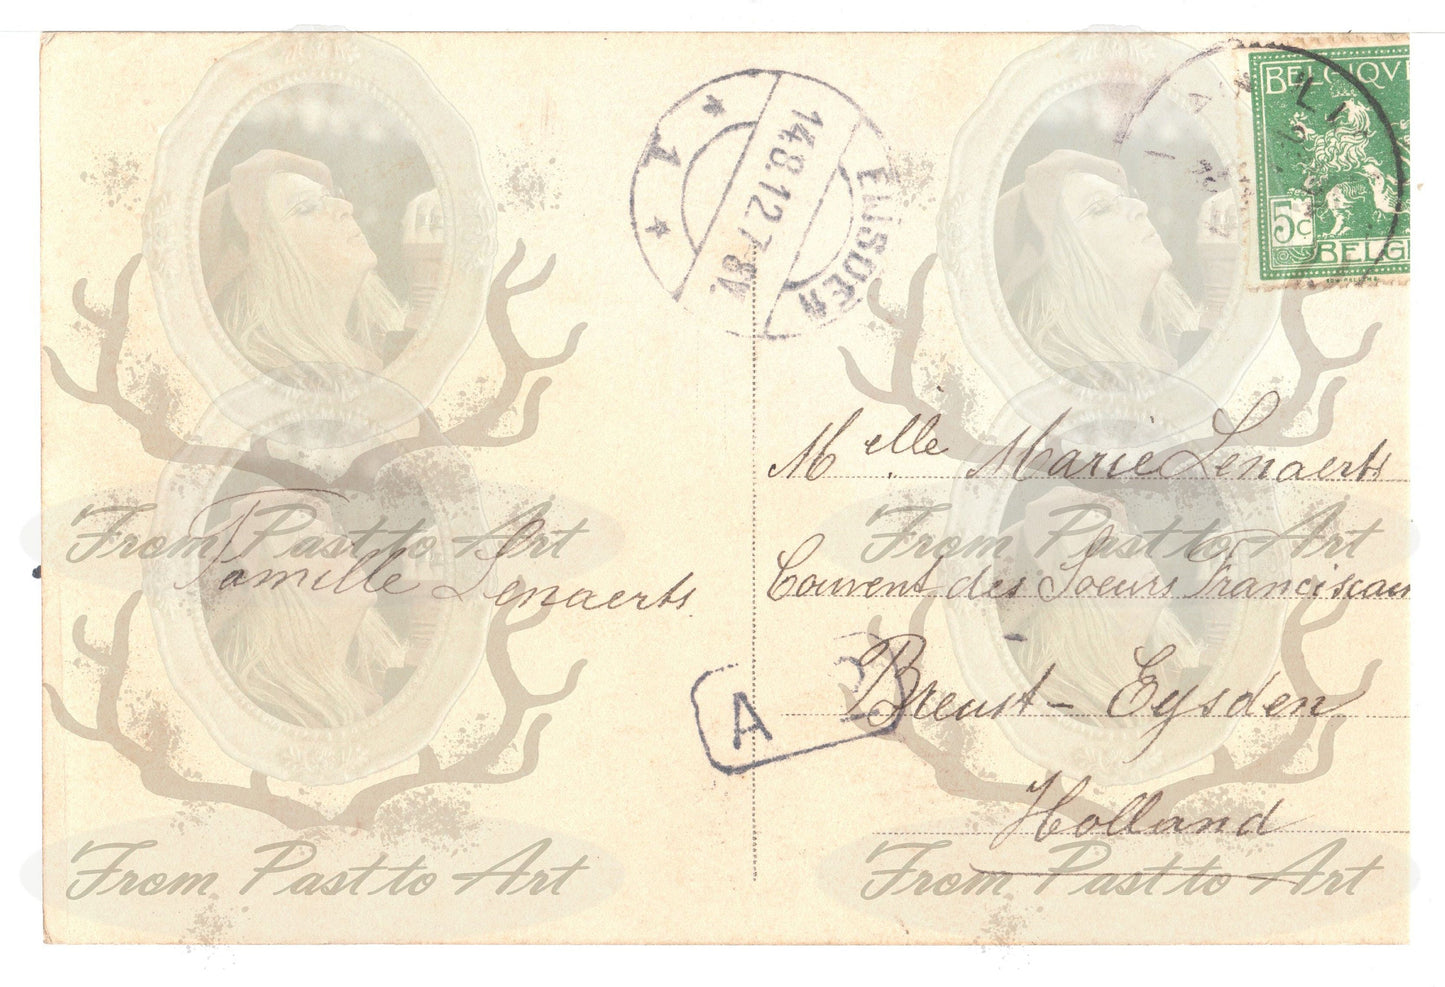 BELGIQUE
5c
BELGI
* 1 *
14.8.12.7-8V.
EIJSDEN
Famille Lenaerts
Melle Marie Lenaerts
Couvent des Soeurs Franciscain
Breust - Eysden
Holland
A 2
From Past to Art
From Past to Art
From Past to Art
From Past to Art